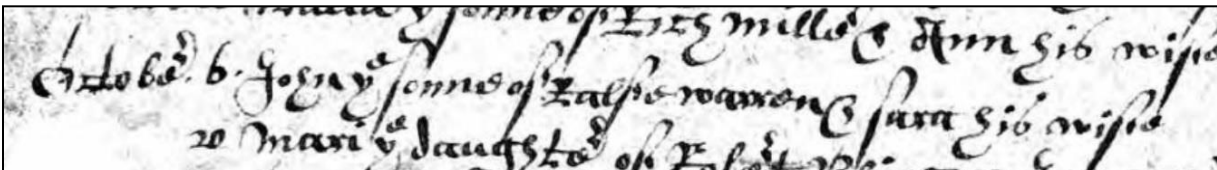 ye sonne of Rich Miller & Ann his wife
October. 6. John ye sonne of Ralfe Warren & Sara his wife
20 Mari ye daughter of Robert